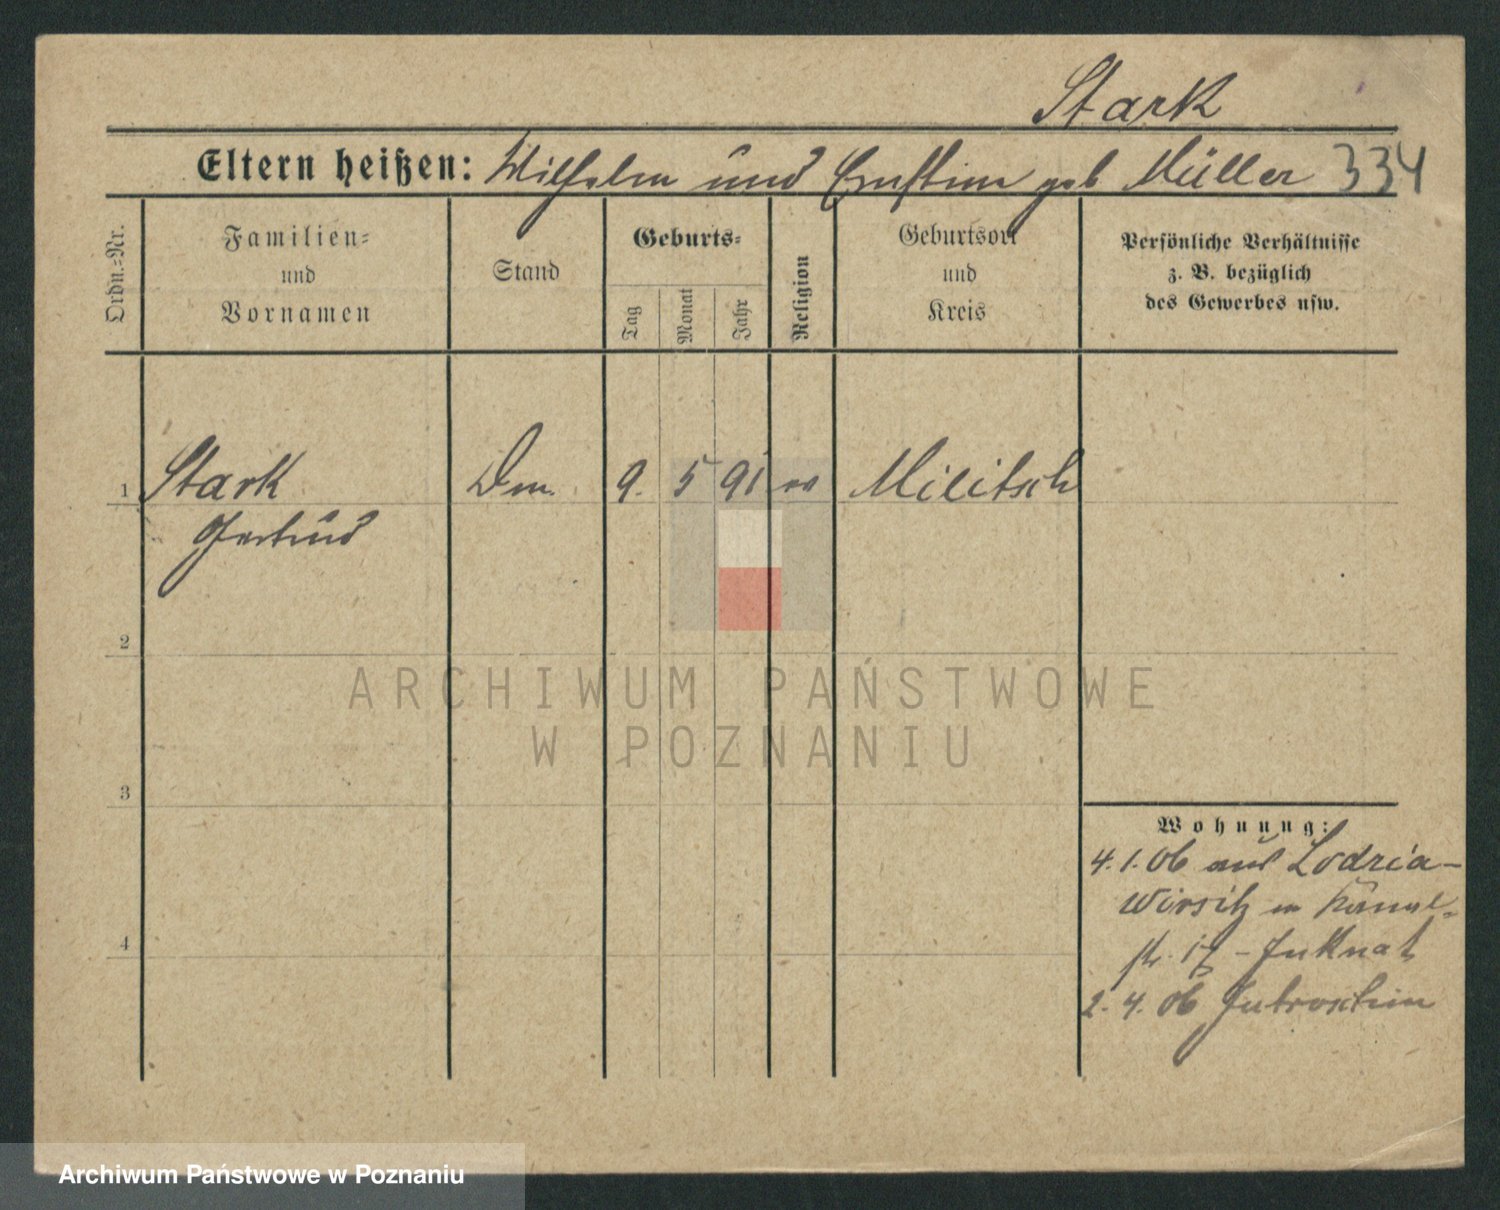 Stark
Eltern heißen: Wilhelm und Ernstine geb Müller 334
Ordn.-Nr.
Familien-
und
Vornamen
Stand
Geburts-
Tag
Monat
Jahr
Religion
Geburtsort
und
Kreis
Persönliche Verhältnisse
z. B. bezüglich
des Gewerbes usw.
1 Stark Dm. 9. 5 91 ev Militsch
Gertrud
2
3
4
Wohnung:
4.1.06 aus Lodzia-
Wirsitz in Kanal-
str. 17 -
2. 4. 06 Jutroschin
ARCHIWUM PAŃSTWOWE
W POZNANIU
Archiwum Państwowe w Poznaniu